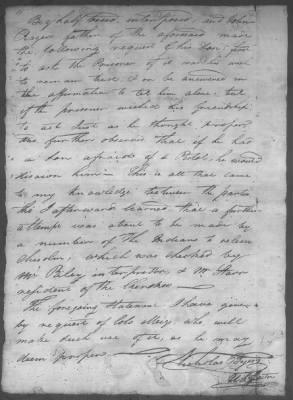 Big half breed, interposed, and John
Rogers father of the aforesaid made
the following request of his son, just
to ask the Prisoner if it was his wish
to remain there, & on be answered in
the affirmative to let him alone, but
if the prisoner wished his friendship
to act just as he thought proper
He further observed that if he had
a son afraid of a Pistol, he would
disown him — This is all that came
to my knowledge between the parties
tho I afterwards learned that a further
attempt was about to be made by
a number of the Indians to release
Chisolm, which was checked by
Mr interpreter, & Mr Starr
resident of the Cherokees —
The foregoing Statement I have given
by request of Colo Meigs, who will
make such use of it, as he may
deem proper —
Nicholas Byers